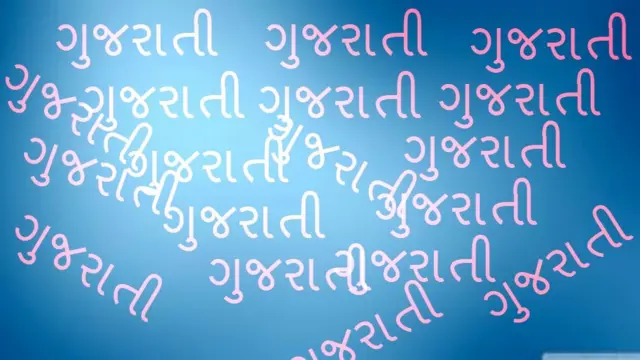 ગુજરાતી ગુજરાતી ગુજરાતી
ગુજરાતી ગુજરાતી ગુજરાતી ગુજરાતી
ગુજરાતી ગુજરાતી ગુજરાતી ગુજરાતી
ગુજરાતી ગુજરાતી
ગુજરાતી ગુજરાતી ગુજરાતી ગુજરાતી
ગુજરાતી